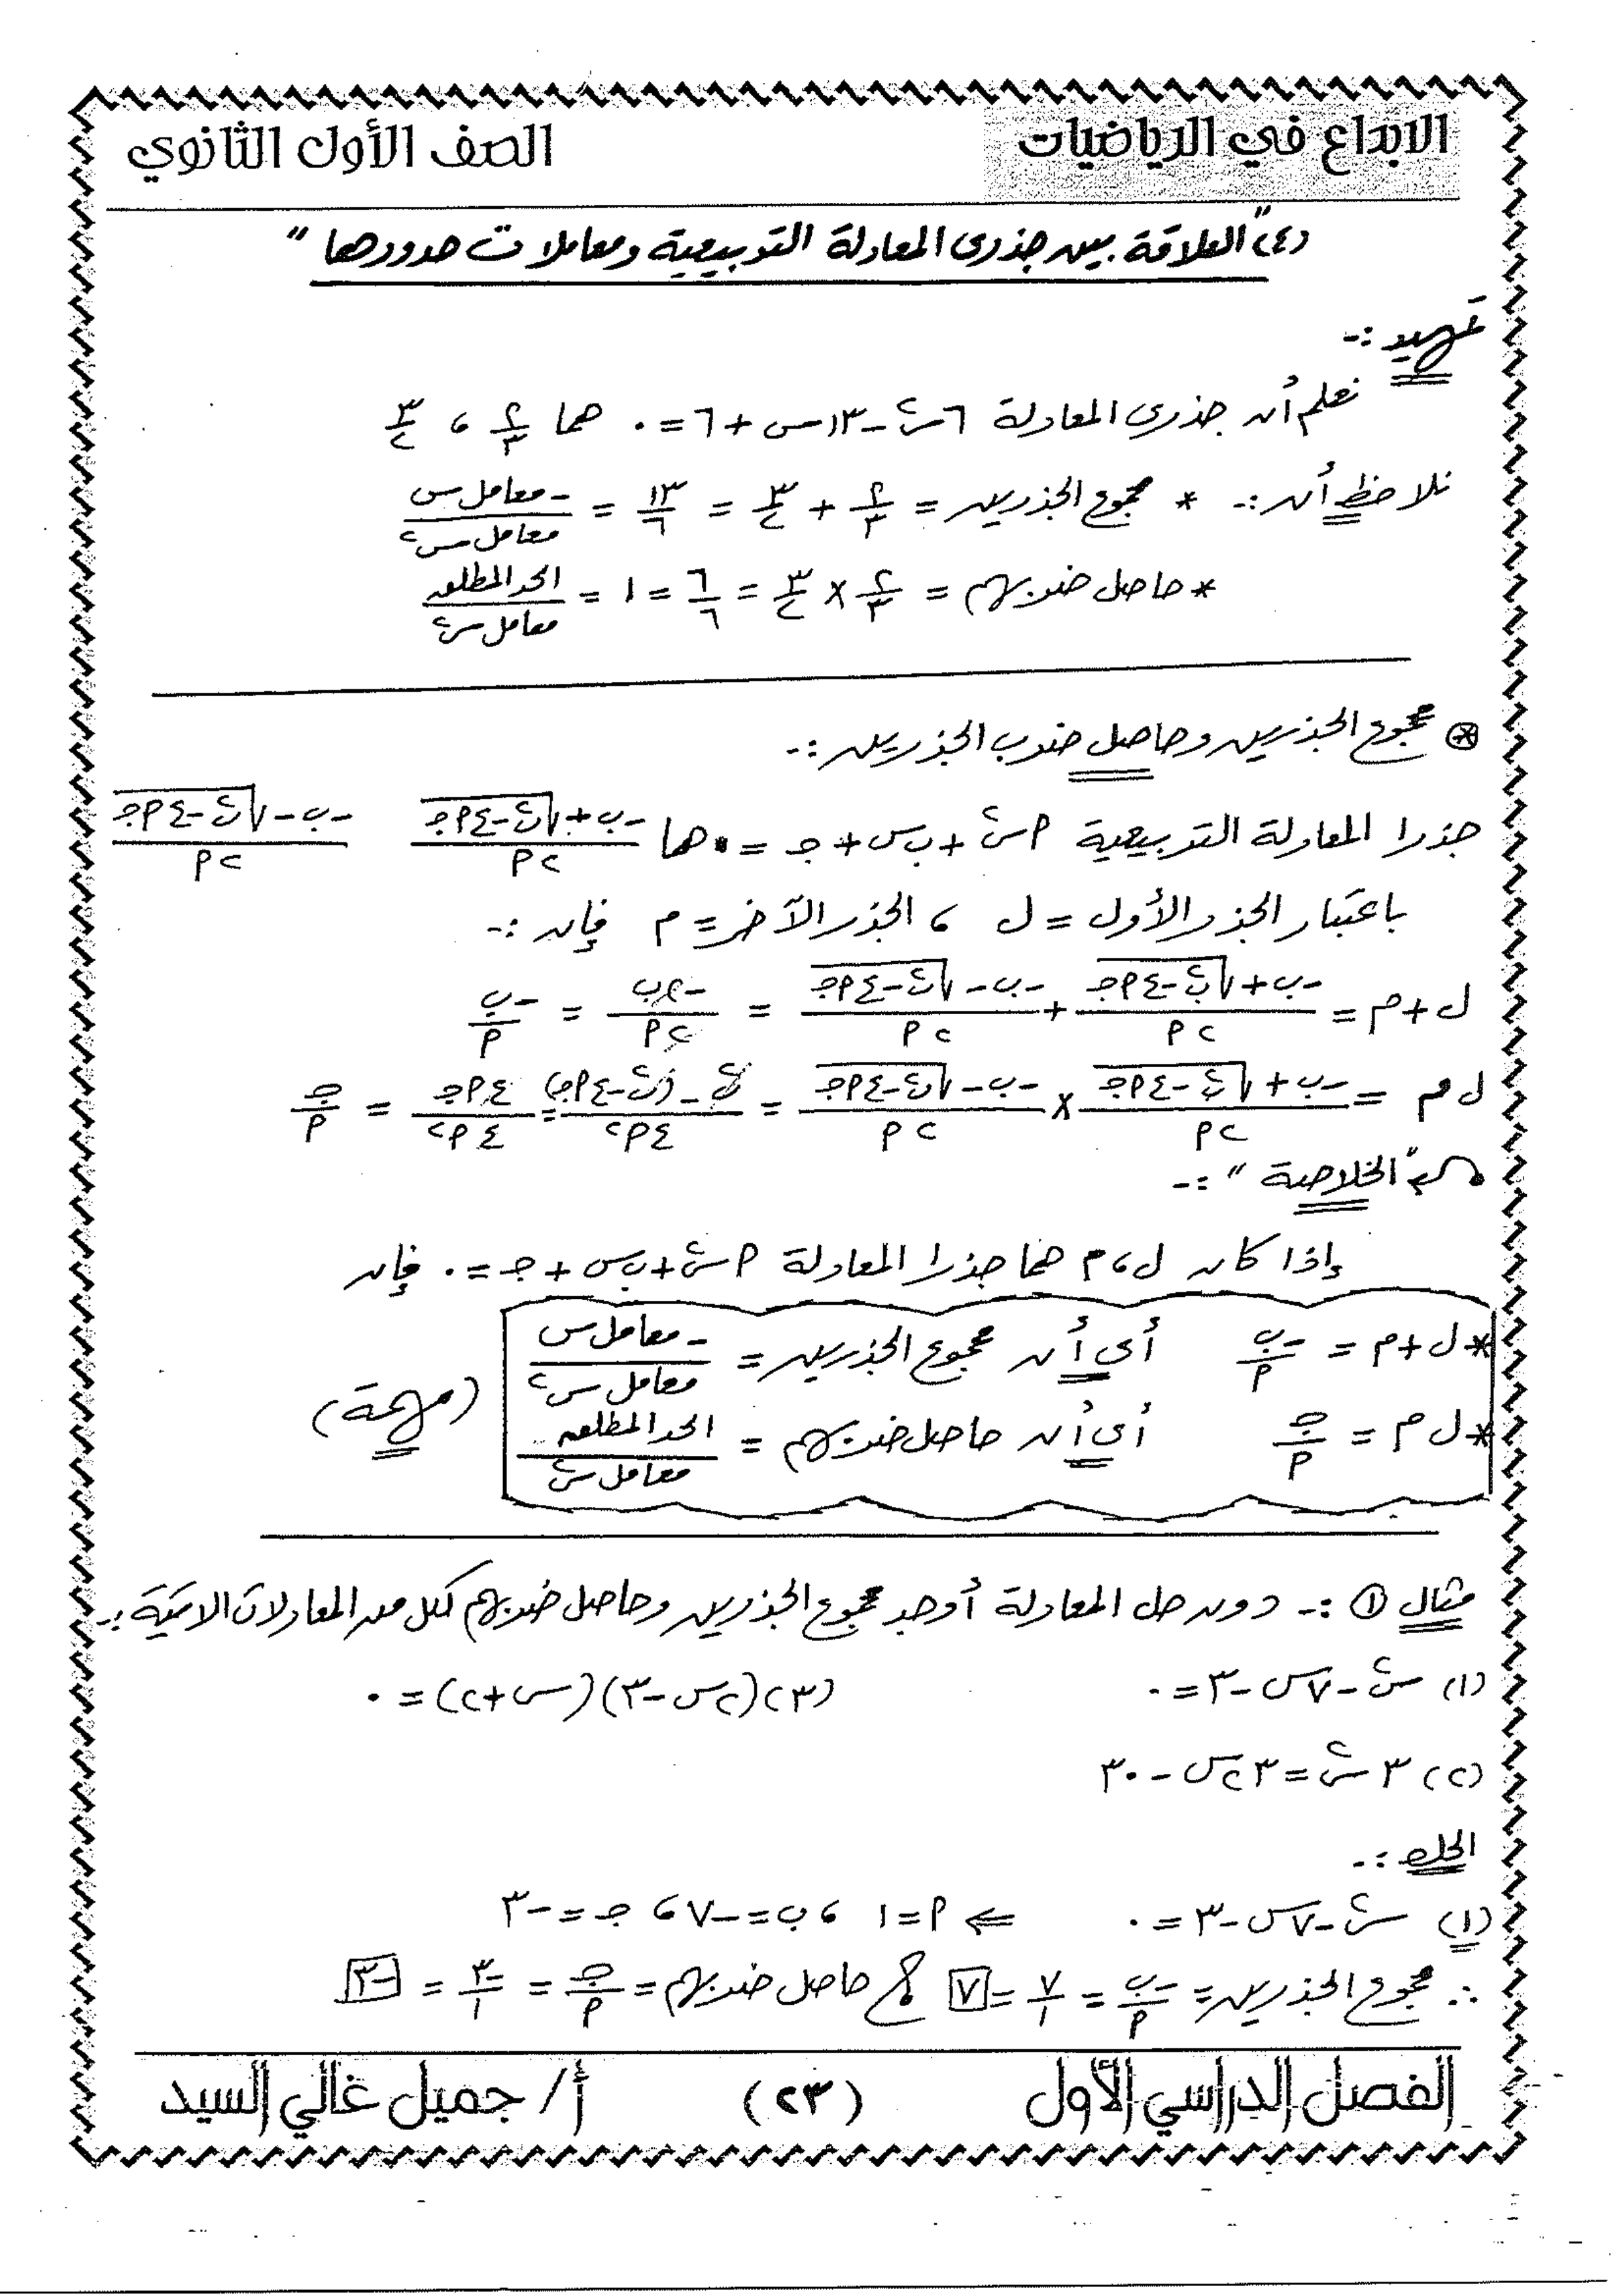 الابداع في الرياضيات
الصف الأول الثانوي
(٤) "العلاقة بين جذرى المعادلة التربيعية ومعاملات حدودها"
تمهيد :-
نعلم أن جذرى المعادلة ٦س٢ - ١٣س + ٦ = ٠ هما ٢/٣ ، ٣/٢
نلاحظ أن :- * مجموع الجذرين = ٢/٣ + ٣/٢ = ١٣/٦ = -معامل س/معامل س٢
* حاصل ضربهم = ٢/٣ × ٣/٢ = ٦/٦ = ١ = الحد المطلق/معامل س٢
⊛ مجموع الجذرين وحاصل ضرب الجذرين :-
جذرا المعادلة التربيعية أس٢ + ب س + جـ = ٠ هما (-ب + √(ب٢ - ٤أجـ))/٢أ (-ب - √(ب٢ - ٤أجـ))/٢أ
باعتبار الجذر الأول = ل ، الجذر الآخر = م فإن :-
ل + م = (-ب + √(ب٢ - ٤أجـ))/٢أ + (-ب - √(ب٢ - ٤أجـ))/٢أ = -٢ب/٢أ = -ب/أ
ل م = (-ب + √(ب٢ - ٤أجـ))/٢أ × (-ب - √(ب٢ - ٤أجـ))/٢أ = (ب٢ - (ب٢ - ٤أجـ))/٤أ٢ = ٤أجـ/٤أ٢ = جـ/أ
"الخلاصة" :-
إذا كان ل ، م هما جذرا المعادلة أس٢ + ب س + جـ = ٠ فإن
* ل + م = -ب/أ أى أن مجموع الجذرين = -معامل س/معامل س٢
* ل م = جـ/أ أى أن حاصل ضربهم = الحد المطلق/معامل س٢
(مهمة)
مثال ① :- دون حل المعادلة أوجد مجموع الجذرين وحاصل ضربهم لكل من المعادلات الآتية :-
(١) س٢ - ٧س - ٣ = ٠ (٣) (٢س - ٣)(س + ٢) = ٠
(٢) ٣س٢ = ٢٣س - ٣٠
الحل :-
(١) س٢ - ٧س - ٣ = ٠ ⇐ أ = ١ ، ب = -٧ ، جـ = -٣
∴ مجموع الجذرين = -ب/أ = ٧/١ = ٧ ، حاصل ضربهم = جـ/أ = -٣/١ = -٣
الفصل الدراسي الأول
(٢٣)
أ/ جميل غالي السيد